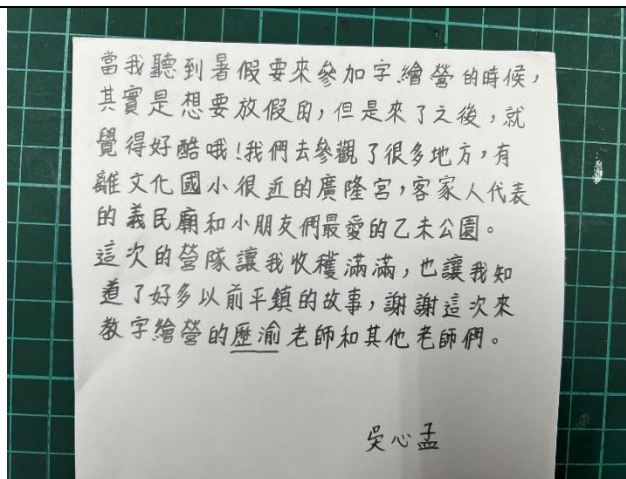 當我聽到暑假要來參加字繪營的時候，
其實是想要放假的，但是來了之後，就
覺得好酷哦！我們去參觀了很多地方，有
離文化國小很近的廣隆宮，客家人代表
的義民廟和小朋友們最愛的乙未公園。
這次的營隊讓我收穫滿滿，也讓我知
道了好多以前平鎮的故事，謝謝這次來
教字繪營的歷渝老師和其他老師們。
吳心孟